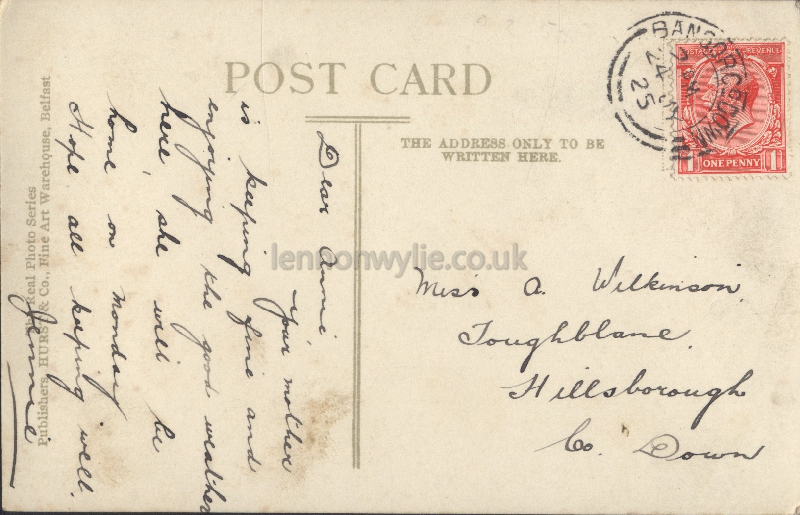 POST CARD
THE ADDRESS ONLY TO BE
WRITTEN HERE.
BANGOR CO. DOWN
24
25
POSTAGE REVENUE
ONE PENNY
Miss A. Wilkinson,
Toughblane,
Hillsborough
Co. Down
Dear Annie,
your mother
is keeping fine and
enjoying the good weather
here, she will be
home on monday
Hope all keeping well.
Jennie
Real Photo Series
Publishers, HURST & Co., Fine Art Warehouse, Belfast
lennonwylie.co.uk